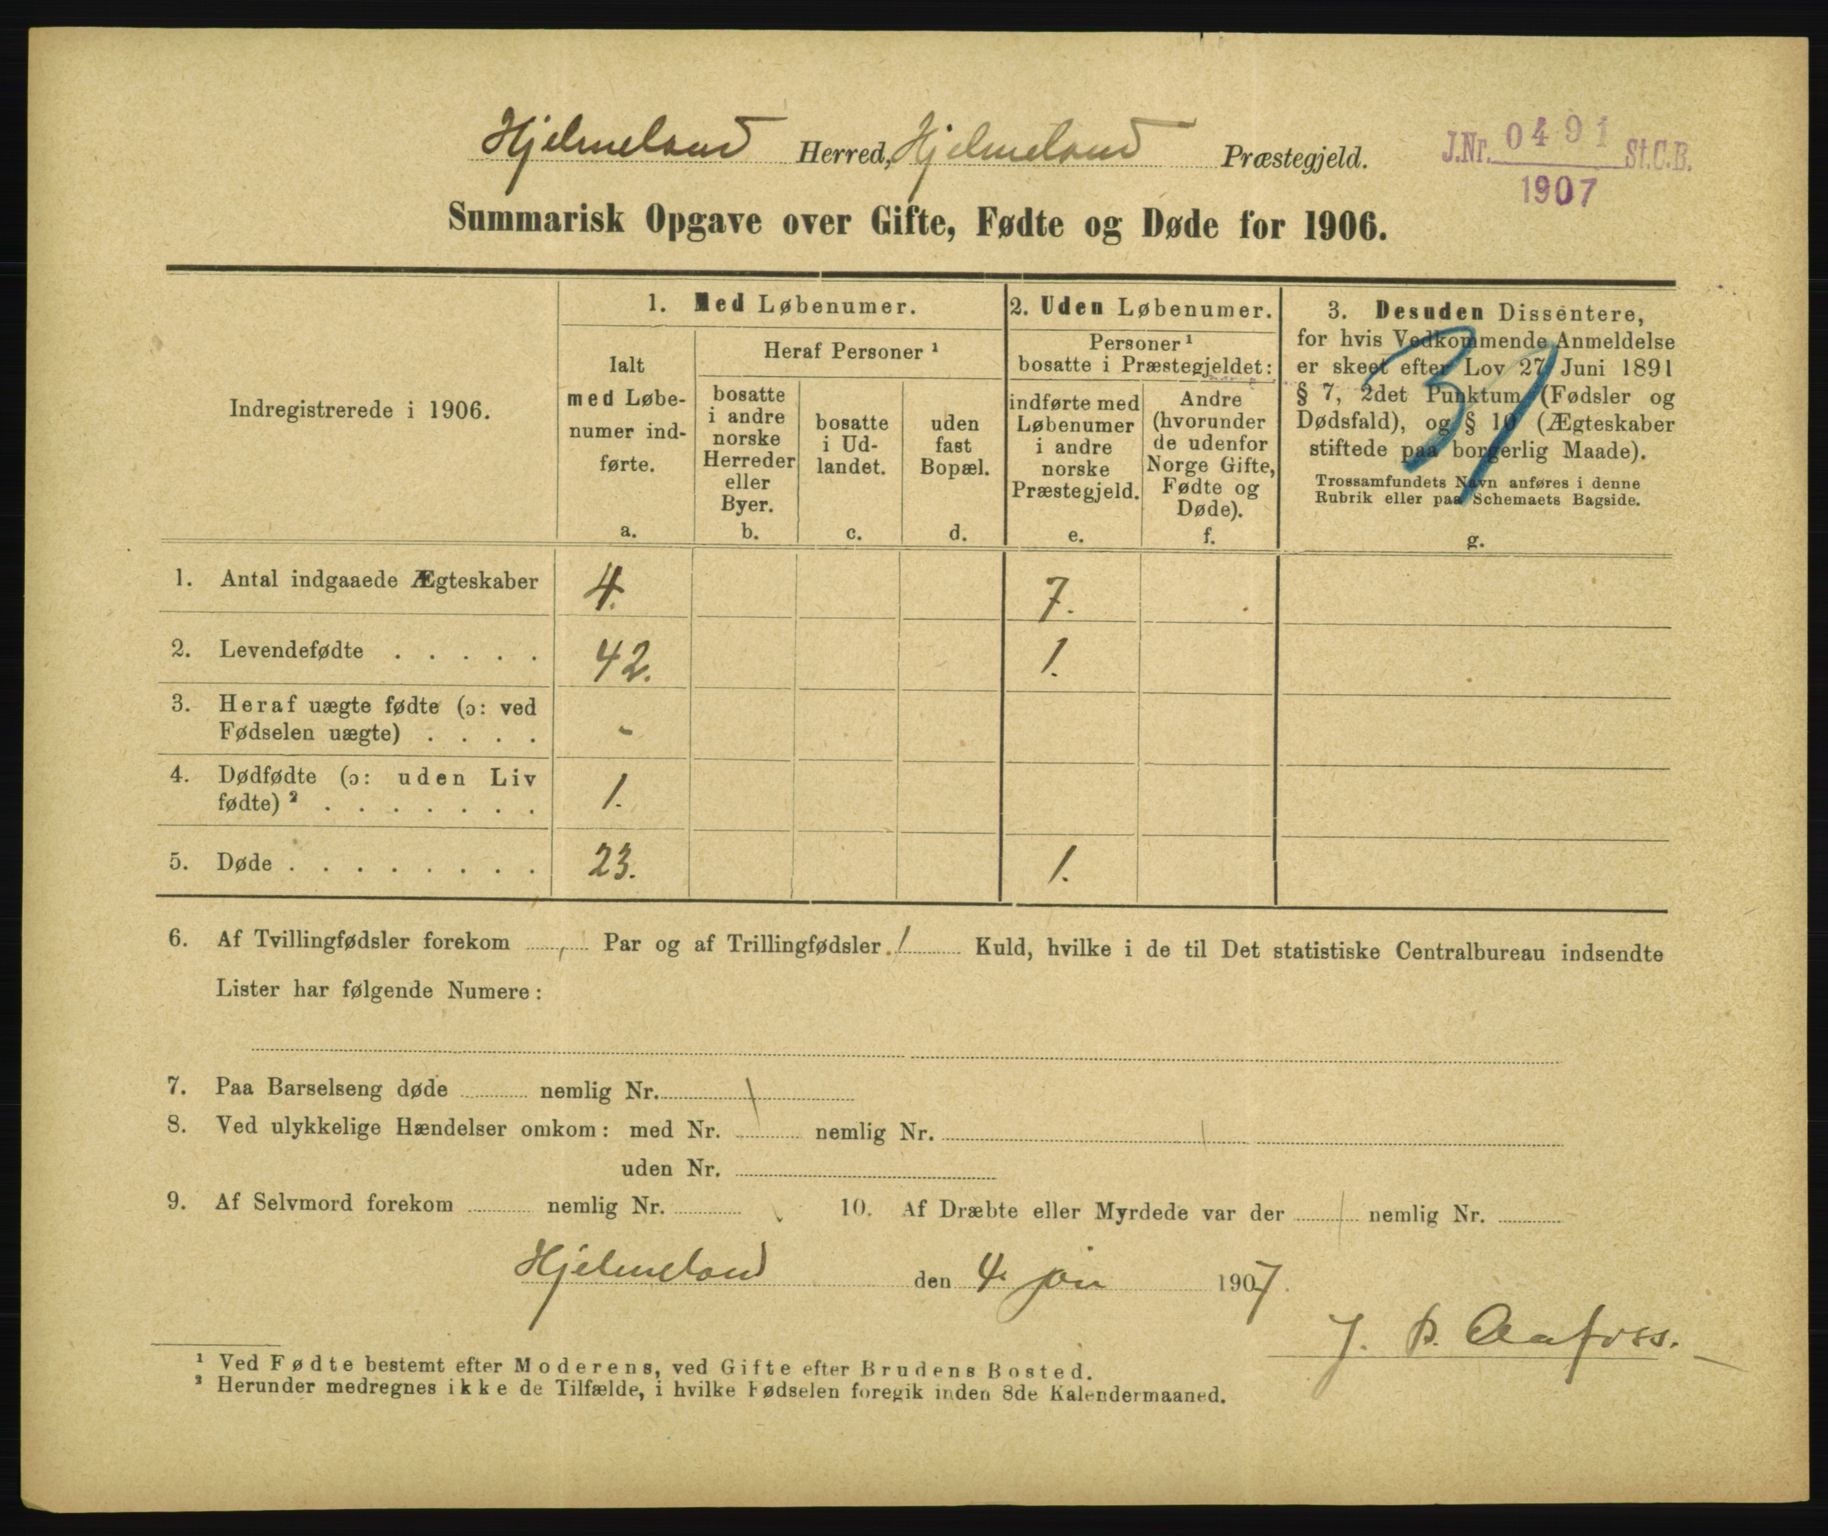 Hjelmeland Herred, Hjelmeland Præstegjeld.
J.Nr. 0491 St.C.B.
1907
Summarisk Opgave over Gifte, Fødte og Døde for 1906.
Indregistrerede i 1906.
1. Med Løbenumer.
Ialt
med Løbe-
numer ind-
førte.
a.
Heraf Personer ¹
bosatte
i andre
norske
Herreder
eller
Byer.
b.
bosatte
i Ud-
landet.
c.
uden
fast
Bopæl.
d.
2. Uden Løbenumer.
Personer ¹
bosatte i Præstegjeldet:
indførte med
Løbenumer
i andre
norske
Præstegjeld.
e.
Andre
(hvorunder
de udenfor
Norge Gifte,
Fødte og
Døde).
f.
3. Desuden Dissentere,
for hvis Vedkommende Anmeldelse
er skeet efter Lov 27 Juni 1891
§ 7, 2det Punktum (Fødsler og
Dødsfald), og § 10 (Ægteskaber
stiftede paa borgerlig Maade).
Trossamfundets Navn anføres i denne
Rubrik eller paa Schemaets Bagside.
g.
37
1. Antal indgaaede Ægteskaber 4. 7.
2. Levendefødte . . . . . 42. 1.
3. Heraf uægte fødte (ɔ: ved
Fødselen uægte) . . . . -
4. Dødfødte (ɔ: uden Liv
fødte) ² . . . . . . . 1.
5. Døde . . . . . . . . 23. 1.
6. Af Tvillingfødsler forekom , Par og af Trillingfødsler 1 Kuld, hvilke i de til Det statistiske Centralbureau indsendte
Lister har følgende Numere:
7. Paa Barselseng døde nemlig Nr.
8. Ved ulykkelige Hændelser omkom: med Nr. nemlig Nr.
uden Nr.
9. Af Selvmord forekom nemlig Nr. 10. Af Dræbte eller Myrdede var der nemlig Nr.
Hjelmeland den 4. jan 1907.
J. B. Aafoss.
¹ Ved Fødte bestemt efter Moderens, ved Gifte efter Brudens Bosted.
² Herunder medregnes ikke de Tilfælde, i hvilke Fødselen foregik inden 8de Kalendermaaned.